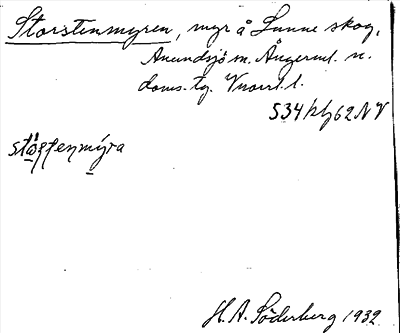 Storstenmyren, myr å Lunne skog,
Anundsjö sn. Ångerml. n.
doms.tg. Vnorrl. l.
S34 h 62 NV
H. A. Söderberg 1932